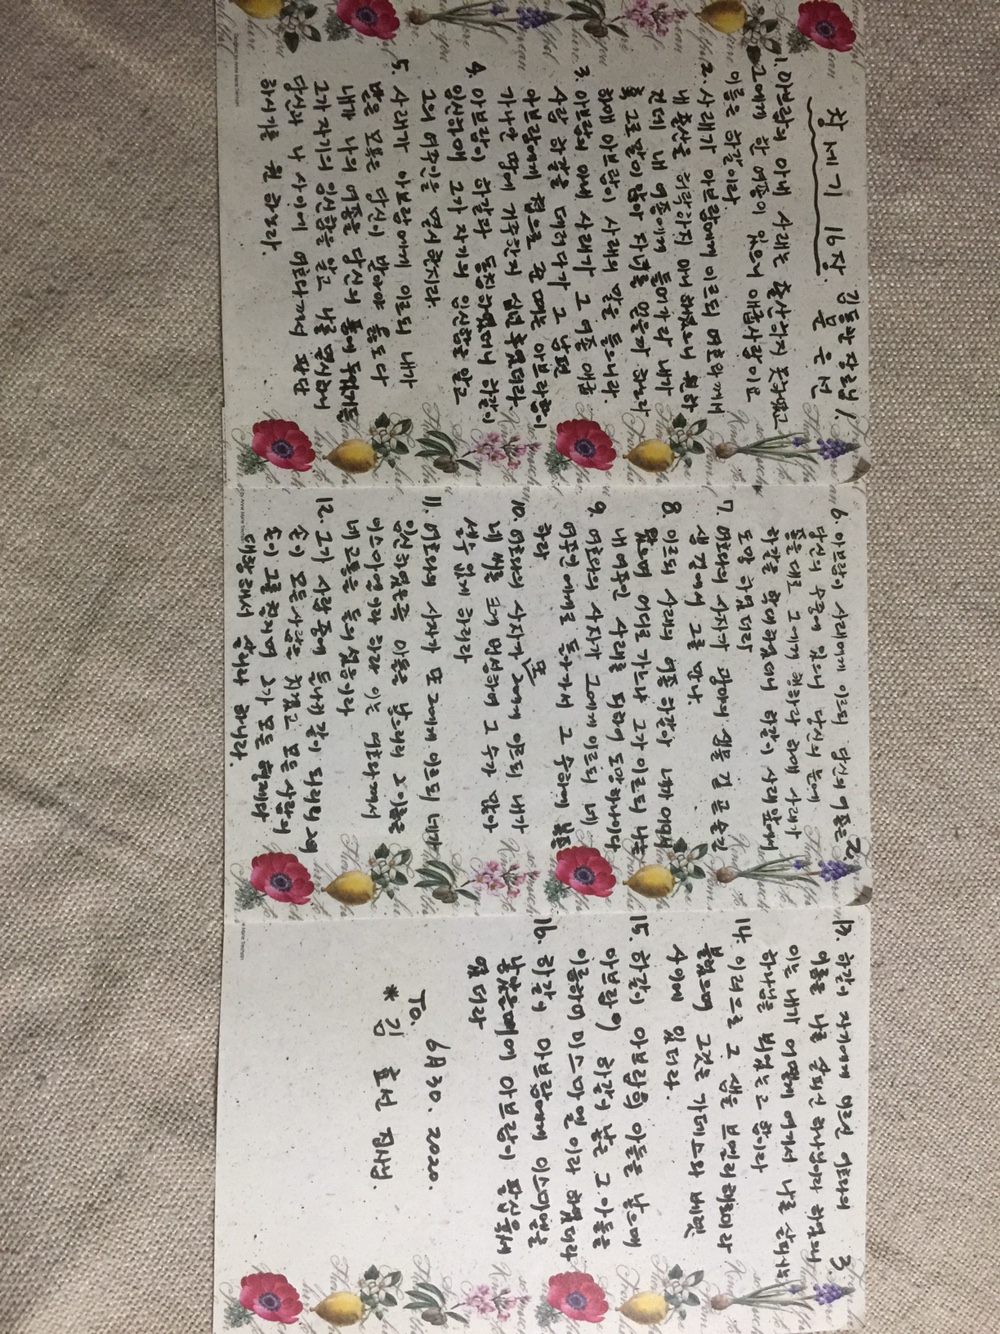 창세기 16장. 김동환 장로님 1.
1. 아브람의 아내 사래는 출산하지 못하였고
그에게 한 여종이 있으니 애굽사람이요
이름은 하갈이라
2. 사래가 아브람에게 이르되 여호와께서
내 출산을 허락하지 아니 하셨으니 원하
건대 내 여종에게 들어가라 내가
혹 그로 말미암아 자녀를 얻을까 하노라
하매 아브람이 사래의 말을 들으니라.
3. 아브람의 아내 사래가 그 여종 애굽
사람 하갈을 데려다가 그 남편
아브람에게 첩으로 준 때는 아브람이
가나안 땅에 거주한지 십년 후였더라.
4. 아브람이 하갈과 동침하였더니 하갈이
임신하매 그가 자기의 임신함을 알고
그의 여주인을 멸시한지라.
5. 사래가 아브람에게 이르되 내가
받은 모욕은 당신이 받아야 옳도다
내가 나의 여종을 당신의 품에 두었거늘
그가 자기의 임신함을 알고 나를 멸시하니
당신과 나 사이에 여호와께서 판단
하시기를 원하노라.
2.
6. 아브람이 사래에게 이르되 당신의 여종은
당신의 수중에 있으니 당신의 눈에
좋을대로 그에게 행하라 하매 사래가
하갈을 학대하였더니 하갈이 사래 앞에서
도망하였더라
7. 여호와의 사자가 광야의 샘물 곁 곧 술길
샘 곁에서 그를 만나
8. 이르되 사래의 여종 하갈아 네가 어디서
왔으며 어디로 가느냐 그가 이르되 나는
내 여주인 사래를 피하여 도망하나이다
9. 여호와의 사자가 그에게 이르되 네
여주인에게로 돌아가서 그 수하에 복종
하라
10. 여호와의 사자가 또 그에게 이르되 내가
네 씨를 크게 번성하여 그 수가 많아
셀수 없게 하리라
11. 여호와의 사자가 또 그에게 이르되 네가
임신하였은즉 아들을 낳으리니 그 이름을
이스마엘이라 하라 이는 여호와께서
네 고통을 들으셨음이라
12. 그가 사람 중에 들나귀같이 되리니 그의
손이 모든 사람을 치겠고 모든 사람의
손이 그를 칠지며 그가 모든 형제와
대항해서 살리라 하니라.
3.
13. 하갈이 자기에게 이르신 여호와의
이름을 나를 살피시는 하나님이라 하였으니
이는 내가 어떻게 여기서 나를 살피시는
하나님을 뵈었는고 함이라
14. 이러므로 그 샘을 브엘라해로이라
불렀으며 그것은 가데스와 베렛
사이에 있더라.
15. 하갈이 아브람의 아들을 낳으매
아브람이 하갈이 낳은 그 아들을
이름하여 이스마엘이라 하였더라
16. 하갈이 아브람에게 이스마엘을
낳았을때에 아브람이 팔십육세
였더라
6月30. 2020.
To.
* 김 효선 집사님.